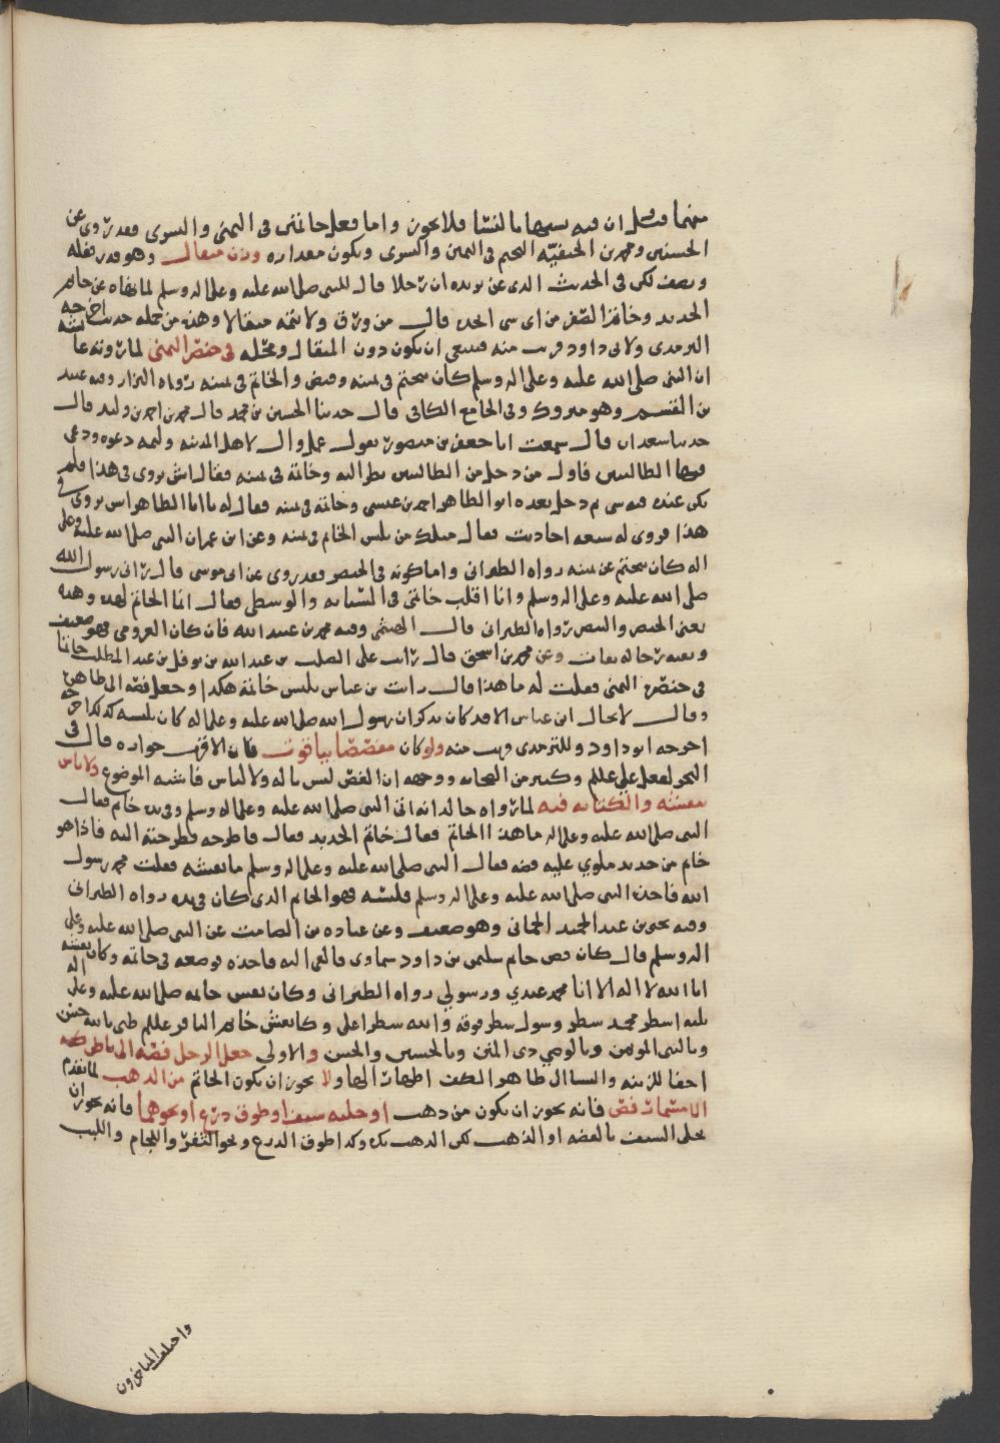 منهما فقيل ان فيه تشبها بالنسا فلا يجوز واما فعل خاتمين في اليمنى واليسرى فقد روى عن
الحسنين ومحمد بن الحنفيه التختم في اليمين واليسرى ويكون مقداره وزن مثقال وهو قدر نقله
ونصف لكن في الحديث الذي عن بريده ان رجلا قال للنبي صلى الله عليه وعلى اله وسلم لما نهاه عن خاتم
الحديد وخاتم الصفر من اي شي اتخذه قال من ورق ولا تتمه مثقالا وهذه من جمله حديث اخرجه
الترمذي ولابي داود قريب منه فينبغي ان يكون دون المثقال ومحله في خنصر اليمنى لما روته عايشه
ان النبي صلى الله عليه وعلى اله وسلم كان يتختم في يمينه وقبض والخاتم في يمينه رواه البزار وفيه عبيد
بن القسم وهو متروك وفي الجامع الكافي قال حدثنا الحسين بن محمد قال محمد بن احمد بن وليد قال
حدثنا سعدان قال سمعت ابا جعفر بن منصور يقول عمل وال لاهل المدينه وليمه دعوه ودعى
فيها الطالبيين فاول من دخل من الطالبيين نظر اليه وخاتمه في يمينه فقال اش تروى في هذا فلم
يكن عنده فيه شي ثم دخل بعده ابو الطاهر احمد بن عيسى وخاتمه في يمينه فقال له يا ابا الطاهر اش تروى في
هذا فروى له سبعه احاديث فقال مثلك من يلبس الخاتم في يمينه وعن ابن عمر ان النبي صلى الله عليه وعلى
اله كان يتختم عن يمينه رواه الطبراني واما كونه في الخنصر فقد روى عن ابي موسى قال راني رسول الله
صلى الله عليه وعلى اله وسلم وانا اقلب خاتمي في السبابه والوسطى فقال انما الخاتم لهذه وهذه
يعني الخنصر والبنصر رواه الطبراني قال الهيثمي وفيه محمد بن عبيد الله فان كان العرزمي فهو ضعيف
وبقيه رجاله ثقات وعن محمد بن اسحق قال رايت على الصلت بن عبد الله بن نوفل بن عبد المطلب خاتما
في خنصره اليمنى فقلت له ما هذا قال رايت بن عباس يلبس خاتمه هكذا وجعل فصه الى ظاهره
وقال لا يخال ابن عباس الا قد كان يذكر ان رسول الله صلى الله عليه وعلى اله كان يلبسه كذلك اخرجه
اخرجه ابو داود وللترمذي قريب منه ولو كان مفصصا بياقوت فان الاقرب جوازه قال في
البحر لفعل علي عليلم وكثير من الصحابه ووجهه ان الفص ليس باله ولا لباس فاشبه الموضوع ولا باس
بنقشه والكتابه فيه لما رواه خالد انه اتى النبي صلى الله عليه وعلى اله وسلم وفي يده خاتم فقال
النبي صلى الله عليه وعلى اله ما هذا الخاتم فقال خاتم الحديد فقال فاطرحه فطرحته اليه فاذا هو
خاتم من حديد ملوي عليه فضه فقال النبي صلى الله عليه وعلى اله وسلم ما نقشه فقلت محمد رسول
الله فاخذه النبي صلى الله عليه وعلى اله وسلم فلبسه فهو الخاتم الذي كان في يده رواه الطبراني
وفيه يحيى بن عبد الحميد الحماني وهو ضعيف وعن عباده بن الصامت عن النبي صلى الله عليه وعلى
اله وسلم قال كان فص خاتم سليمن بن داود سماوي فالقي اليه فاخذه فوضعه في خاتمه وكان نقشه
انا الله لا اله الا انا محمد عبدي ورسولي رواه الطبراني وكان نقش خاتمه صلى الله عليه وعلى اله
ثلثه اسطر محمد سطر ورسول سطر فوقه والله سطر اعلى وكان نقش خاتم الباقر عليلم ظني بالله حسن
وبالنبي الموتمن وبالوصي ذي المنن وبالحسين والحسن والاولى جعل الرجل فصه الى باطن كفه
اخفا للزينه والنسا الى ظاهر الكف اظهارا لها ولا يجوز ان يكون الخاتم من الذهب لما تقدم
الا مسمار فص فانه يجوز ان يكون من ذهب او حليه سيف او طوق درع او نحوهما فانه يجوز ان
يحلى السيف بالفضه او الذهب لكن الذهب يكره وكذا طوق الدرع ونحو الثفر واللجام واللبب
واختلف المتاخرون